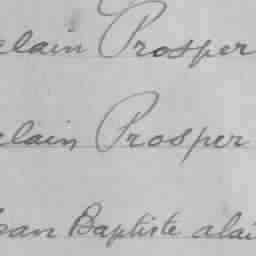 elain Prosper
elain Prosper
ean Baptiste alai